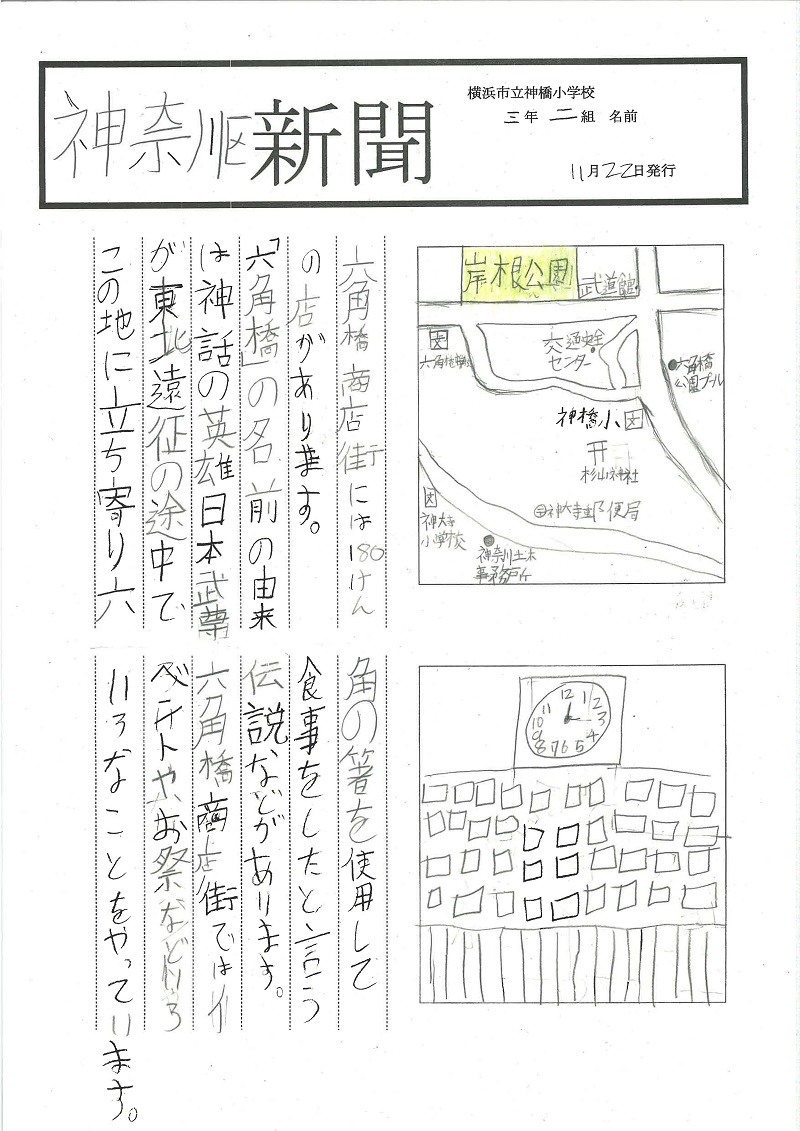 神奈川区新聞
横浜市立神橋小学校
三年 二組 名前
11月22日発行
岸根公園
武道館
交通安全
センター
六角橋
公園プール
神橋小 文
杉山神社
神大寺郵便局
文
文
神大寺
小学校
神奈川土木
事務所
六角橋商店街には180けん
の店があります。
「六角橋」の名前の由来
は神話の英雄日本武尊
が東北遠征の途中で
この地に立ち寄り六
角の箸を使用して
食事をしたと言う
伝説などがあります。
六角橋商店街ではイ
ベントや、お祭などいろ
いろなことをやっています。
12 1 2 3 4 5 6 7 8 9 10 11